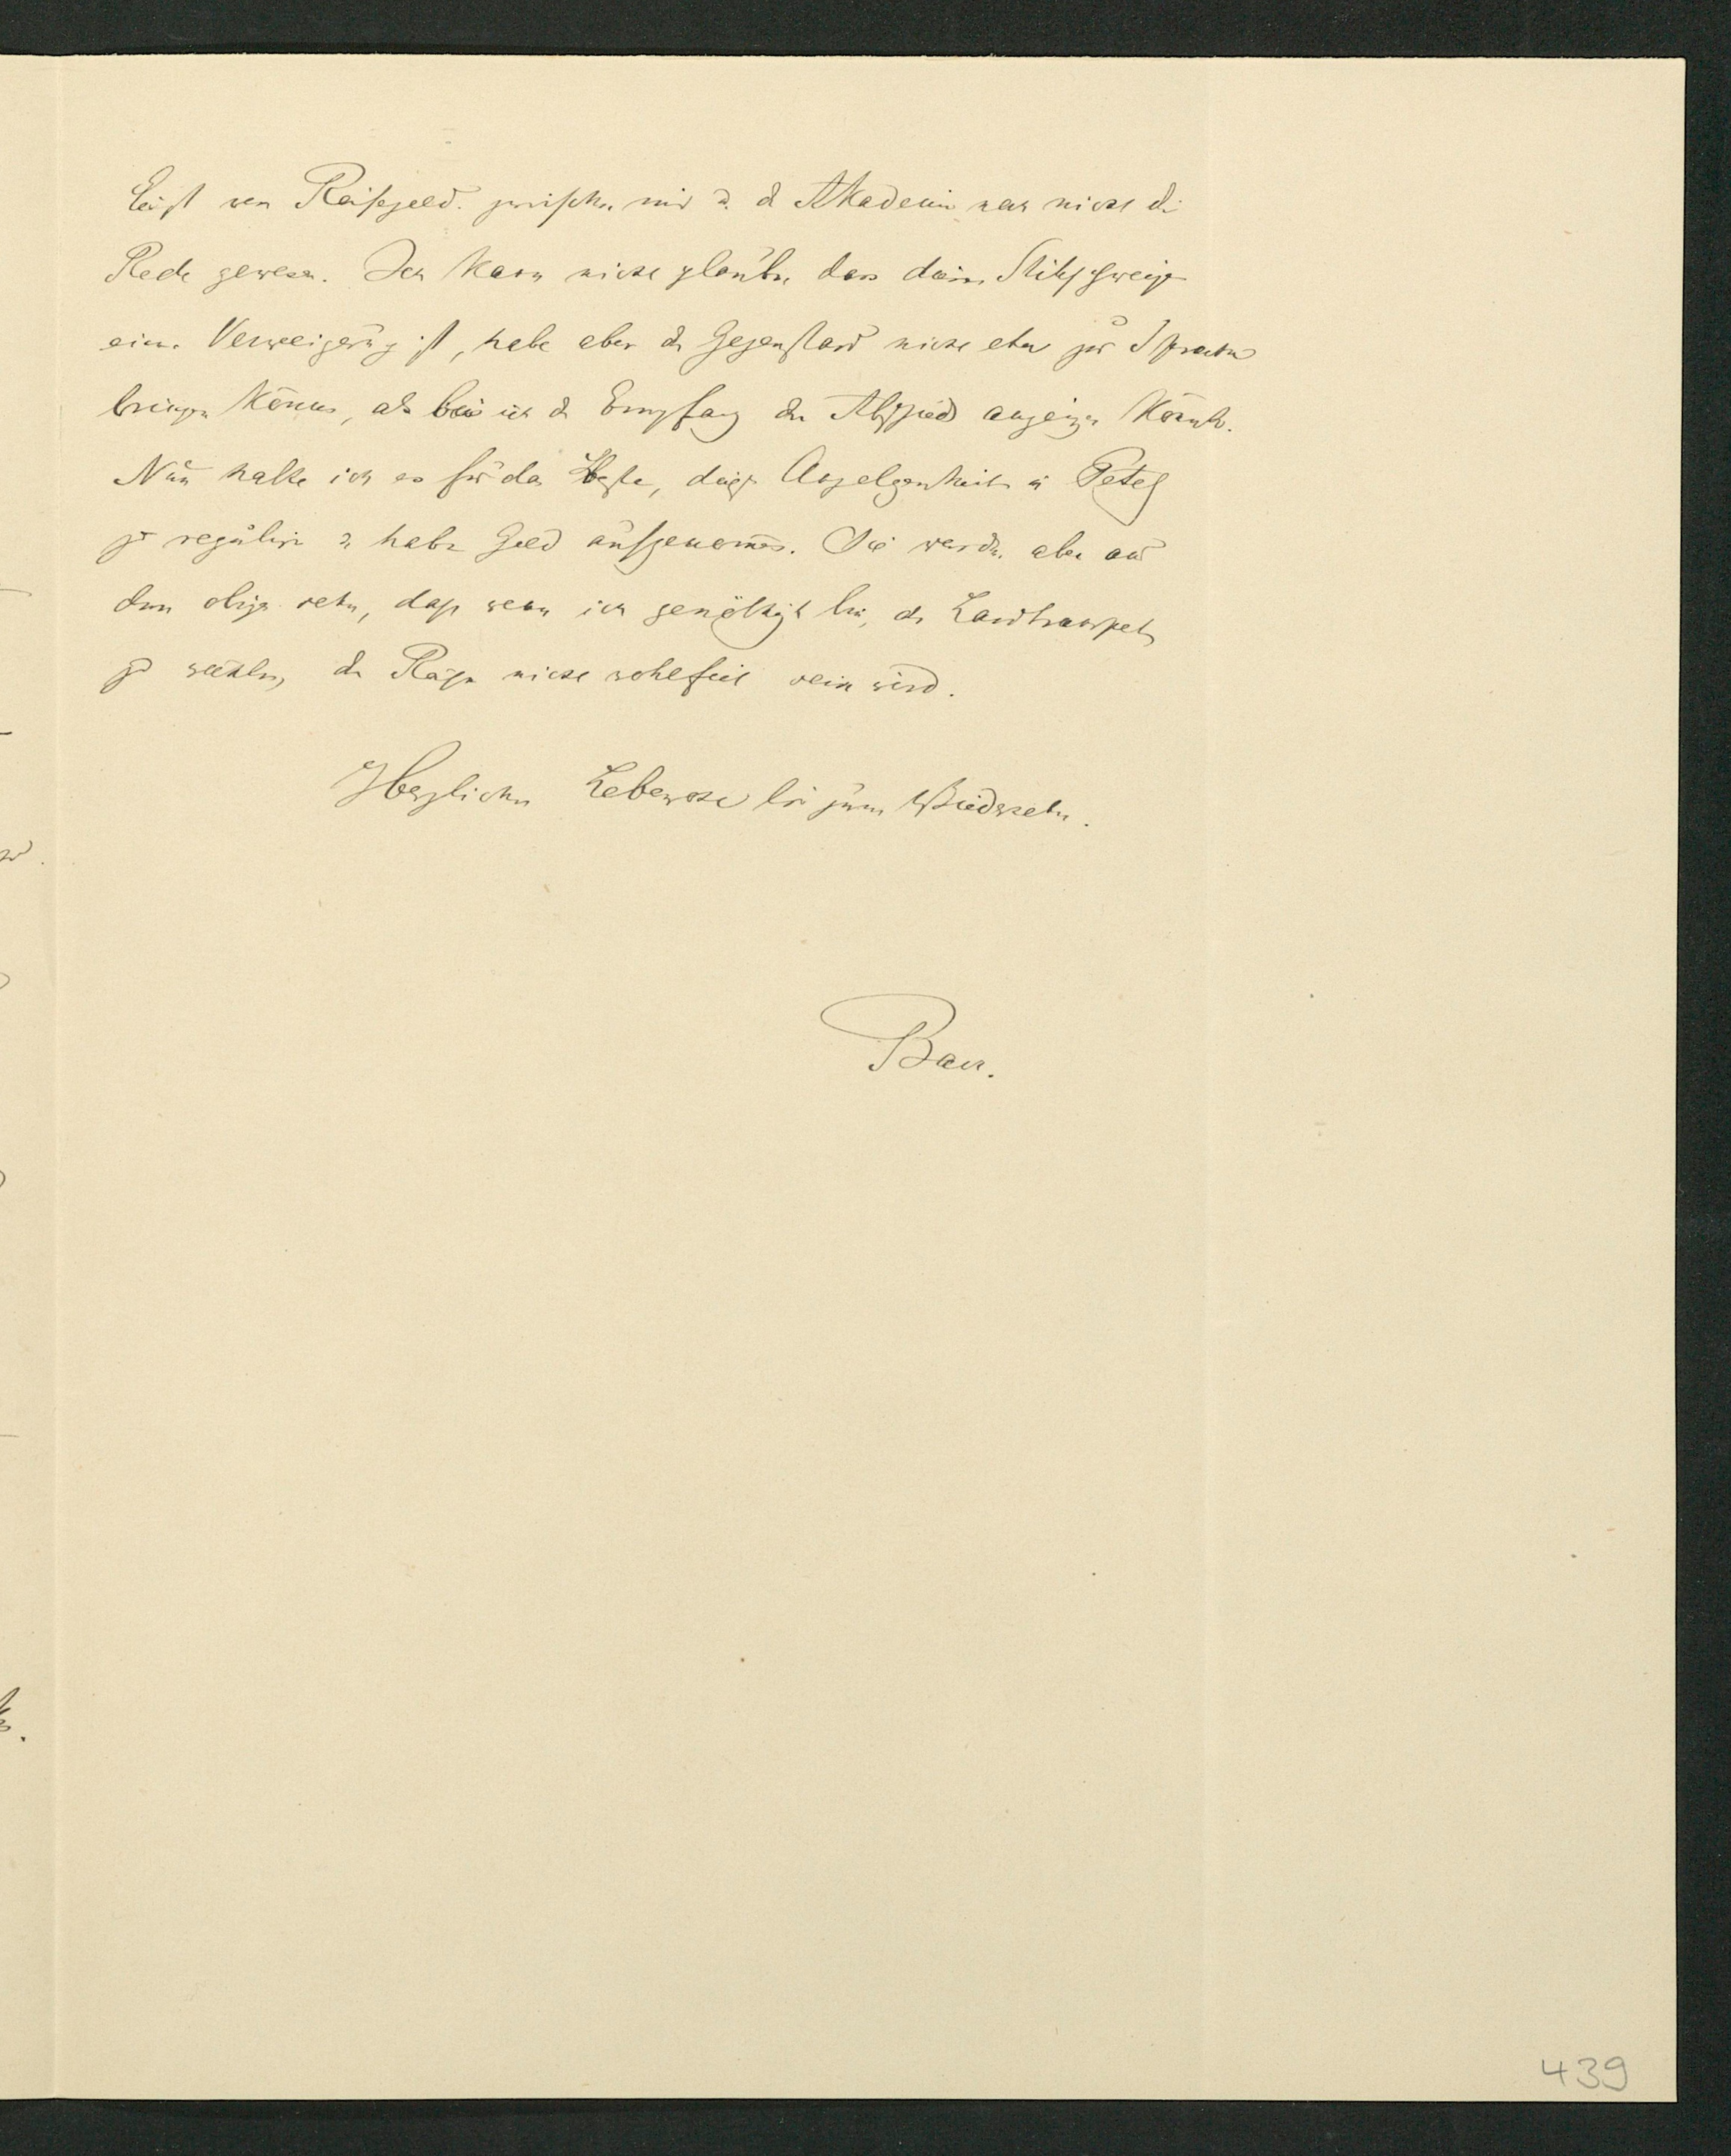 ist von Reisegeld zwischen mir u. d Akademie noch nicht die
Rede gewesen. Ich kann nicht glauben dass dieses Stillschweigen
eine Verweigerung ist, habe aber den Gegenstand nicht eher zur Sprache
bringen können, als bis ich d Empfang des Abschieds anzeigen konnte.
Nun halte ich es für das Beste, diese Angelegenheit in Petersb
zu reguliren u habe Geld aufgenommen. Sie werden aber aus
dem obigen sehen, dass wenn ich genöthigt bin, den Landtransport
zu wählen, die Reise nicht wohlfeil sein wird.
Herzliches Lebewohl bis zum Wiedersehen.
Baer.
439